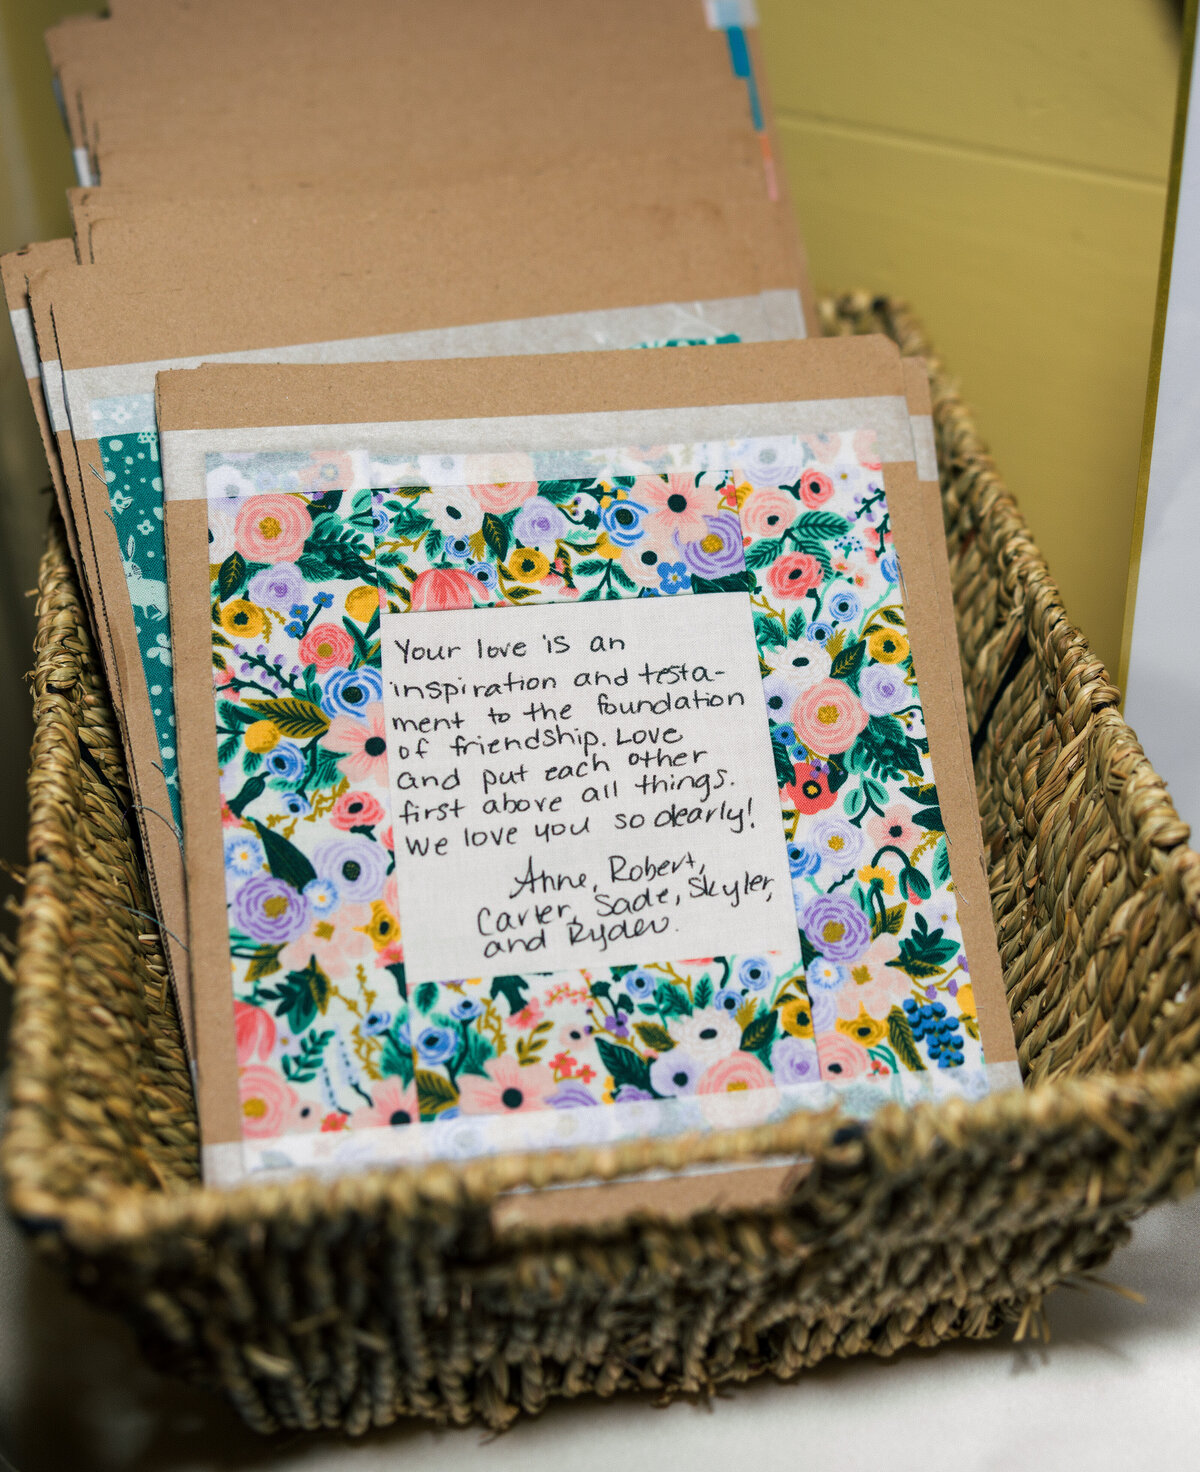 Your love is an
inspiration and testa-
ment to the foundation
of friendship. Love
and put each other
first above all things.
We love you so dearly!
Anne, Robert,
Carter, Sade, Skyler,
and Ryder.